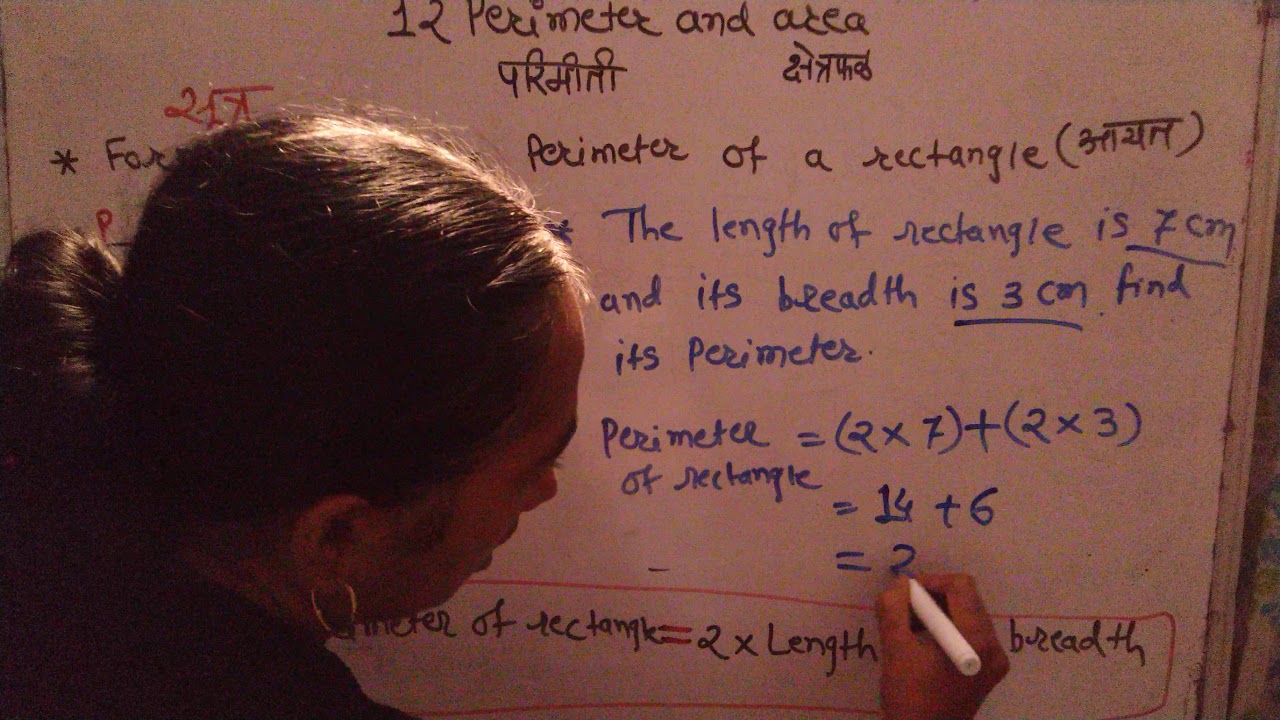 12 Perimeter and area
परिमीती क्षेत्रफळ
सूत्र
* For
Perimeter of a rectangle (आयत)
P
* The length of rectangle is 7 cm
and its breadth is 3 cm. find
its Perimeter.
Perimeter = (2 × 7) + (2 × 3)
of rectangle
= 14 + 6
= 2
meter of rectangle = 2 × Length breadth